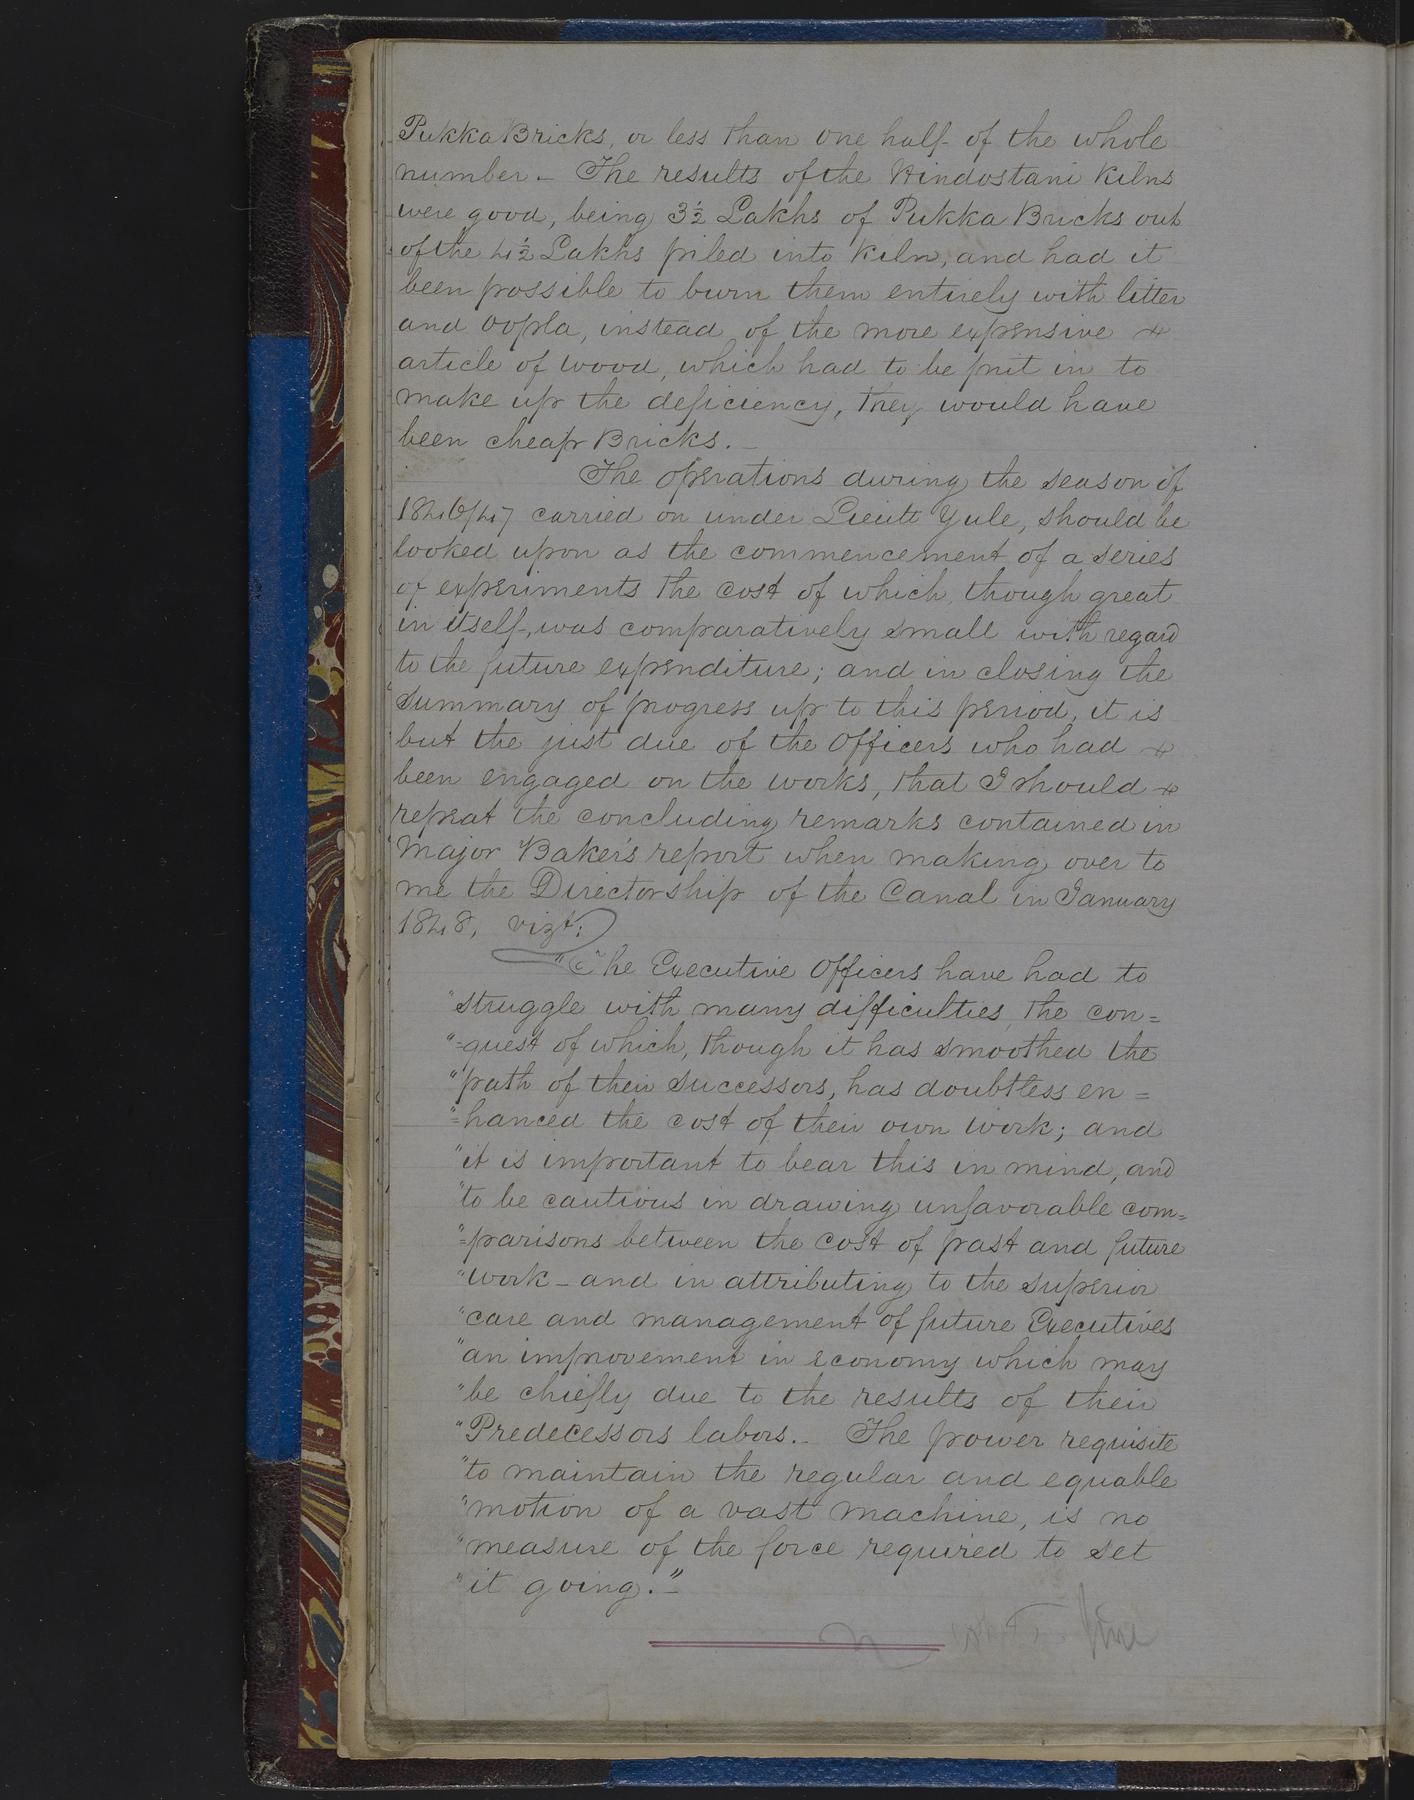 Pukka Bricks, or less than one half of the whole
number. — The results of the Hindostani Kilns
were good, being 3½ Lakhs of Pukka Bricks out
of the 4½ Lakhs piled into Kiln, and had it
been possible to burn them entirely with litter
and Oopla, instead of the more expensive
article of wood, which had to be put in to
make up the deficiency, they would have
been cheap Bricks. —
The operations during the season of
1846/47 carried on under Lieutt Yule, should be
looked upon as the commencement of a series
of experiments the cost of which, though great
in itself, was comparatively small with regard
to the future expenditure; and in closing the
summary of progress up to this period, it is
but the just due of the Officers who had
been engaged on the works, that I should
repeat the concluding remarks contained in
Major Baker's report when making over to
me the Directorship of the Canal in January
1848, vizt:
"The Executive Officers have had to
"struggle with many difficulties, the con=
"=quest of which, though it has smoothed the
"path of their successors, has doubtless en=
"=hanced the cost of their own work; and
"it is important to bear this in mind, and
"to be cautious in drawing unfavorable com=
"=parisons between the cost of past and future
"work — and in attributing to the superior
"care and management of future Executives
"an improvement in economy which may
"be chiefly due to the results of their
"Predecessors labors. — The power requisite
"to maintain the regular and equable
"motion of a vast machine, is no
"measure of the force required to set
"it going." —